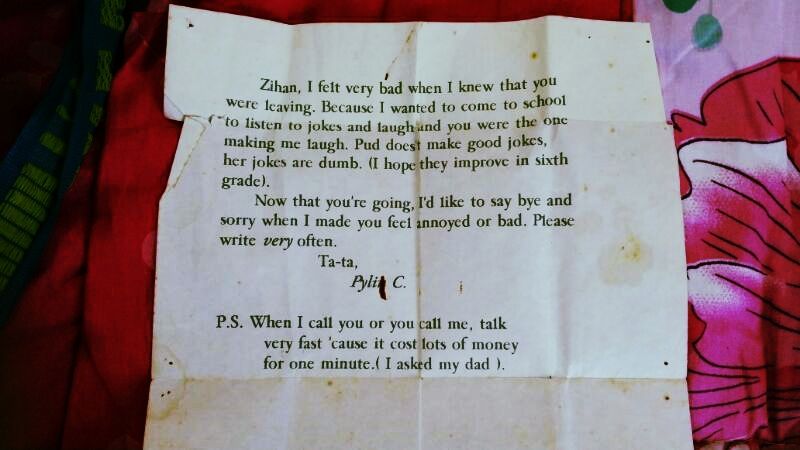 Zihan, I felt very bad when I knew that you
were leaving. Because I wanted to come to school
to listen to jokes and laugh and you were the one
making me laugh. Pud does't make good jokes,
her jokes are dumb. (I hope they improve in sixth
grade).
Now that you're going, I'd like to say bye and
sorry when I made you feel annoyed or bad. Please
write very often.
Ta-ta,
C.
P.S. When I call you or you call me, talk
very fast 'cause it cost lots of money
for one minute.( I asked my dad ).